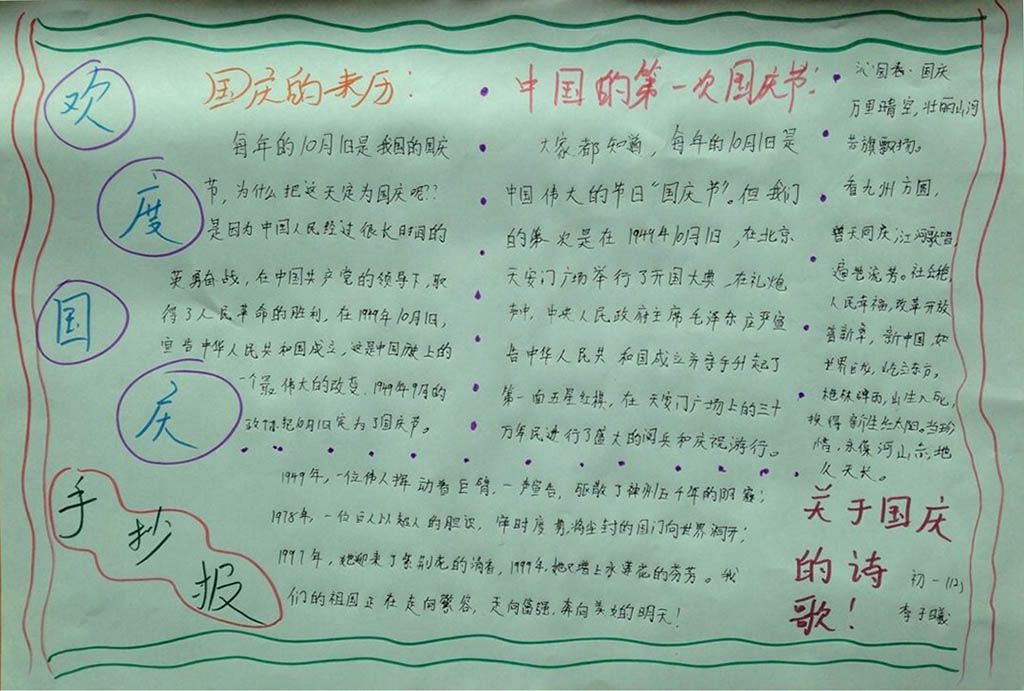 欢
度
国
庆
手
抄
报
国庆的来历:
每年的10月1日是我国的国庆
节,为什么把这天定为国庆呢??
是因为中国人民经过很长时间的
英勇奋战,在中国共产党的领导下,取
得了人民革命的胜利,在1949年10月1日,
宣告中华人民共和国成立,这是中国历史上的
一个最伟大的改变,1949年9月的
10月1日定为了国庆节。
中国的第一次国庆节:
大家都知道,每年的10月1日是
中国伟大的节日“国庆节”。但我们
的第一次是在1949年10月1日,在北京
天安门广场举行了开国大典,在礼炮
声中,中央人民政府主席毛泽东庄严宣
告中华人民共和国成立并亲手升起了
第一面五星红旗,在天安门广场上的三十
万军民进行了盛大的阅兵和庆祝游行。
沁园春·国庆
万里晴空,壮丽山河
飘扬。
看九州方圆,
普天同庆,江河歌唱,
遍地流芳。社会
人民幸福,改革开放
新中国,如
世界巨龙,屹立东方,
出生入死,
换得新生红太阳。当珍
惜,永保河山,地
久天长。
1949年,一位伟人挥动着巨臂,一声宣告,驱散了五千年的阴霾;
1978年,一位巨人以超人的胆识,审时度势,将尘封的国门向世界洞开;
1997年,她迎来了紫荆花的清香,1999年,她又增上水莲花的芬芳。我
们的祖国正在走向繁荣,走向富强,奔向美好的明天!
关于国庆
的诗
歌!
初一(12)
李子曦